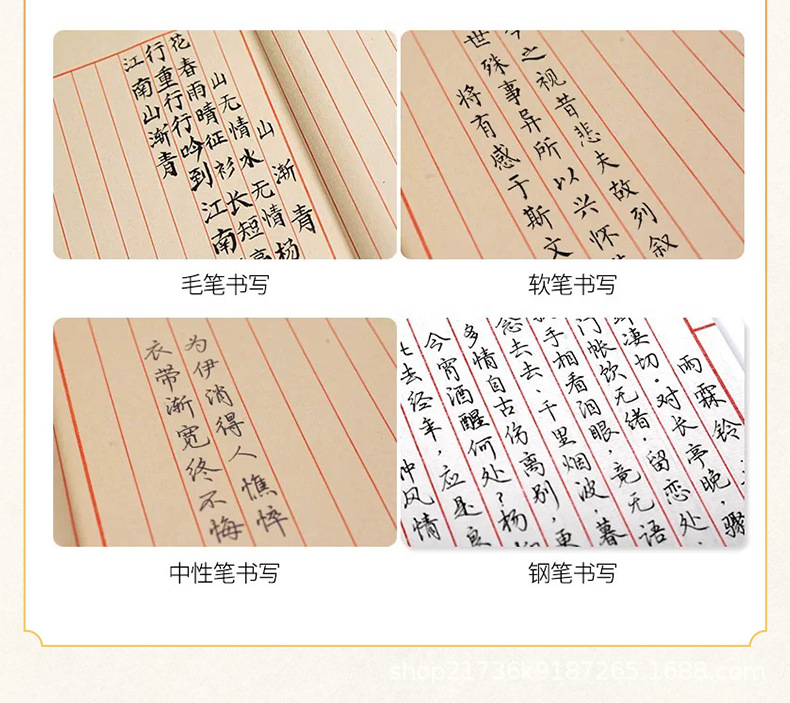 山渐青
山无情水无情杨
花春雨晴征衫长短亭
行重行行吟到江南
江南山渐青
之视昔悲夫故列叙
世殊事异所以兴怀
将有感于斯文
毛笔书写
软笔书写
为伊消得人憔悴
衣带渐宽终不悔
雨霖铃
凄切。对长亭晚，骤
门帐饮无绪，留恋处，
手相看泪眼，竟无语
念去去、千里烟波，暮
多情自古伤离别，更
今宵酒醒何处？杨
去经年，应是良
种风情
中性笔书写
钢笔书写
shop21736k9187265.1688.com